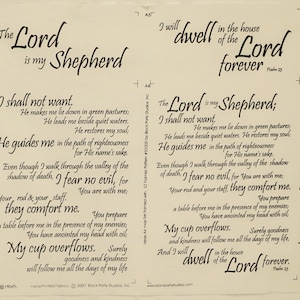 The Lord
is my Shepherd
I shall not want.
He makes me lie down in green pastures;
He leads me beside quiet waters.
He restores my soul;
He guides me in the path of righteousness
for His name's sake.
Even though I walk through the valley of the
shadow of death, I fear no evil, for
You are with me;
Your rod & your staff,
they comfort me.
You prepare
a table before me in the presence of my enemies;
You have anointed my head with oil;
My cup overflows. Surely
goodness and kindness
will follow me all the days of my life
I will dwell in the house
of the Lord
forever Psalm 23
The Lord is my Shepherd;
I shall not want.
He makes me lie down in green pastures;
He leads me beside quiet waters. He restores my soul;
He guides me in the path of righteousness
for His name's sake.
Even though I walk through the valley of the
shadow of death, I fear no evil, for You are with me;
Your rod and your staff they comfort me.
You prepare
a table before me in the presence of my enemies;
You have anointed my head with oil;
My cup overflows. Surely goodness and kindness
will follow me all the days of my life,
And I will dwell in the house
of the Lord forever. Psalm 23